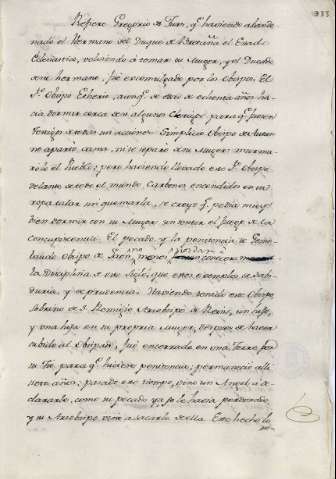 Refiere Gregorio de Turs, q.e haviendo abando
nado el Hermano del Duque de Bretaña el Estado
Eclesiastico, volviendo á tomar su Muger, y el Ducado
de su hermano, fue excomulgado por los Obispos. El
S.to Obispo
hacia dormir cerca de si algunos Clerigos para q.e fuesen
testigos de todas sus acciones. Simplicio Obispo de Autun
no apartó cama, ni se separó de su Muger
el Pueblo; pero haviendo llevado este S.to Obispo
delante de todo el mundo Carbones encendidos en su
ropa talar sin quemarla, se creyó q.e podia muy
bien dormir con su Muger sin temer el fuego de la
concupiscencia. El pecado, y la penitencia de Gene
baudo Obispo de Laon, no menos
la Disciplina de este Siglo, que otros exemplos de Sabi
duria, y de prudencia. Haviendo tenido este Obispo
Sobrino de S. Remigio Arzobispo de Reims, un hijo,
y una hija en su propria Muger, despues de haver
subido al Obispado, fue encerrado en una Torre por
su Tio, para q.e hiciese penitencia; permaneció alli
siete años; pasado este tiempo, vino un Angel á de
clararle, como su pecado ya se le havia perdonado,
y su Arzobispo vino á sacarle de ella. Este hecho lo